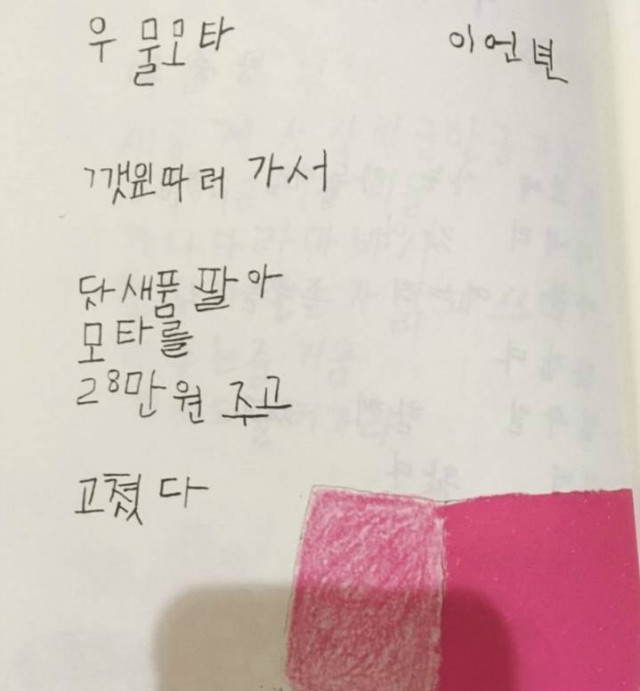 우물모타 이언년
깻잎따러 가서
닷새품 팔아
모타를
28만원 주고
고쳤다